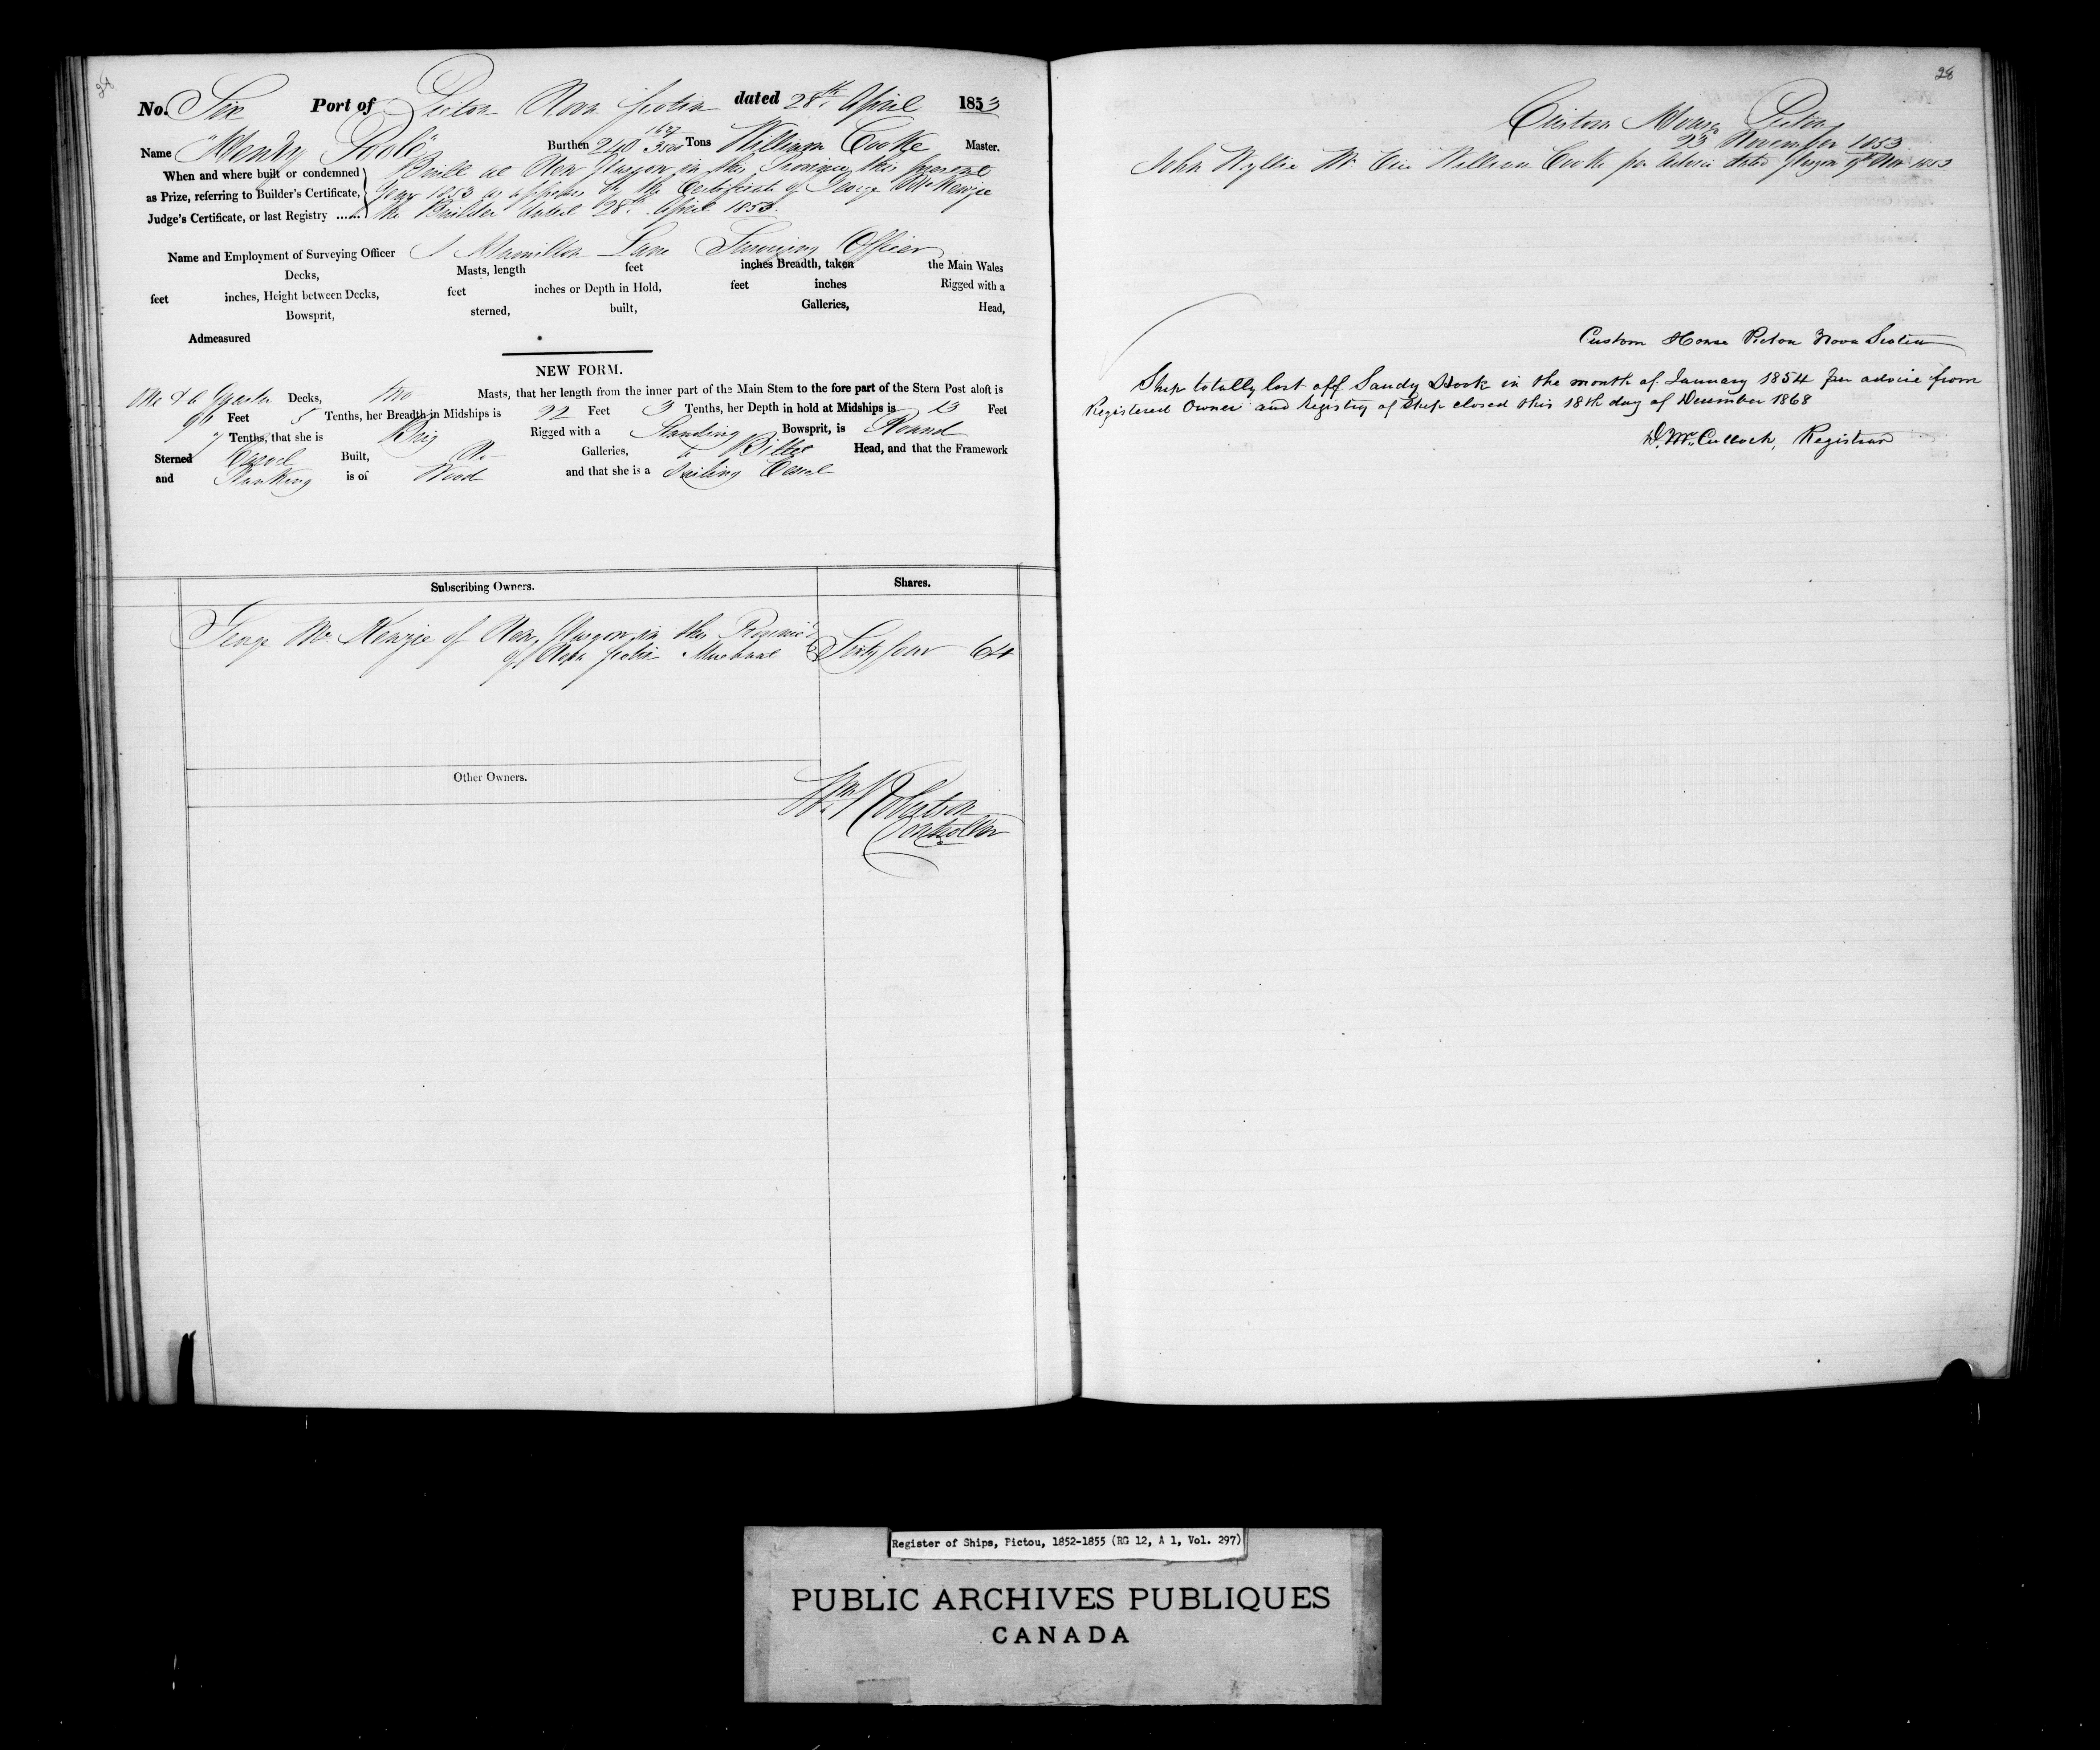 No. Six Port of Pictou Nova Scotia dated 28th April 1853
Name "Henry Poole" Burthen 240 Tons William Cooke Master.
When and where built or condemned
as Prize, referring to Builder's Certificate,
Judge's Certificate, or last Registry ......
Built at New Glasgow in this Province this present
Year 1853 as appears by the Certificate of George McKenzie
the Builder dated 28th April 1853.
Name and Employment of Surveying Officer Hamilton Lane Surveying Officer
Decks, Masts, length feet inches Breadth, taken the Main Wales
feet inches, Height between Decks, feet inches or Depth in Hold, feet inches Rigged with a
Bowsprit, sterned, built, Galleries, Head,
Admeasured
NEW FORM.
One & a Quarter Decks, two Masts, that her length from the inner part of the Main Stem to the fore part of the Stern Post aloft is
96 Feet 5 Tenths, her Breadth in Midships is 22 Feet 3 Tenths, her Depth in hold at Midships is 13 Feet
7 Tenths, that she is Brig Rigged with a Standing Bowsprit, is Round
Sterned Carvel Built, No Galleries, Billet Head, and that the Framework
and Planking is of Wood and that she is a Sailing Vessel
Subscribing Owners. Shares.
George McKenzie of New Glasgow in this Province
of Nova Scotia Merchant Sixty four 64
Other Owners.
Wm Robertson
Controller
28
Custom House Pictou
23 November 1853
John Wyllie Mr Vice William Cooke per advice dated Glasgow Nov 1853
Custom House Pictou Nova Scotia
Ship totally lost off Sandy Hook in the month of January 1854 per advice from
Registered Owner and Registry of Ship closed this 18th day of December 1868
D. McCulloch, Registrar
Register of Ships, Pictou, 1852-1855 (RG 12, A 1, Vol. 297)
PUBLIC ARCHIVES PUBLIQUES
CANADA